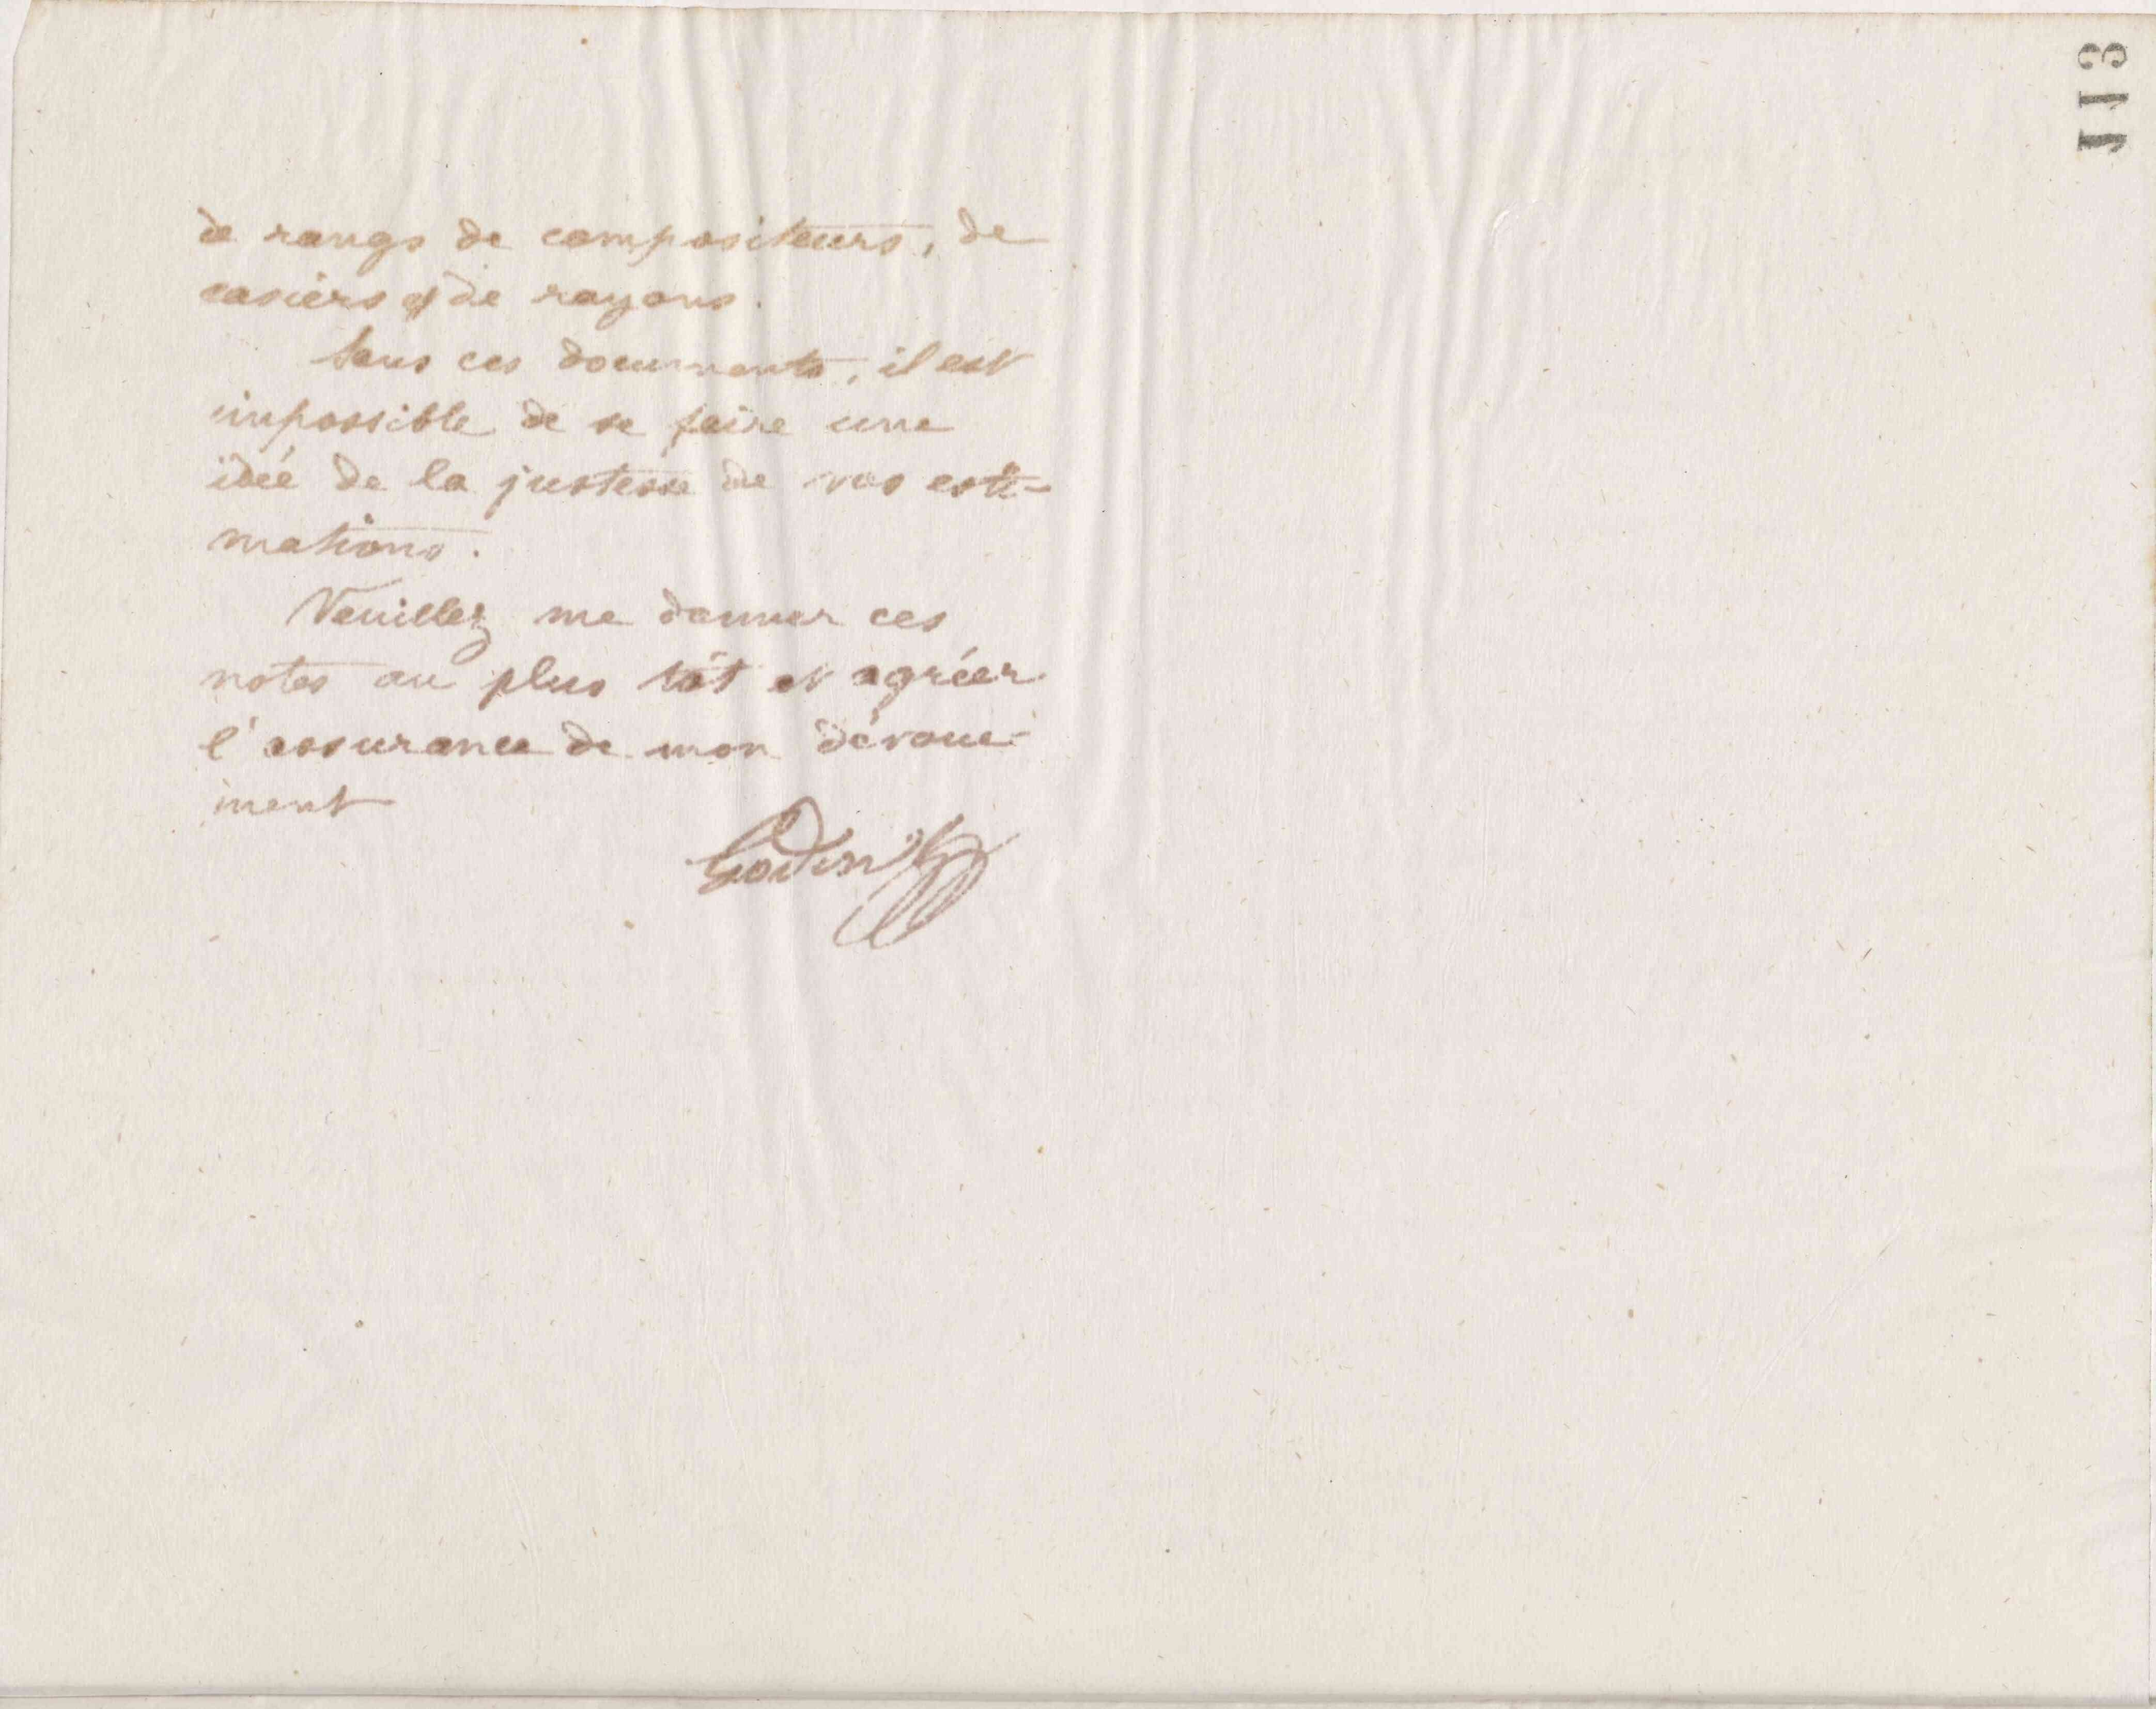 113
de rangs de compositeurs, de
casiers et de rayons.
Sans ces documents, il est
impossible de se faire une
idée de la justesse de vos esti-
mations.
Veuillez me donner ces
notes au plus tôt et agréer
l'assurance de mon dévoue-
ment
Godin